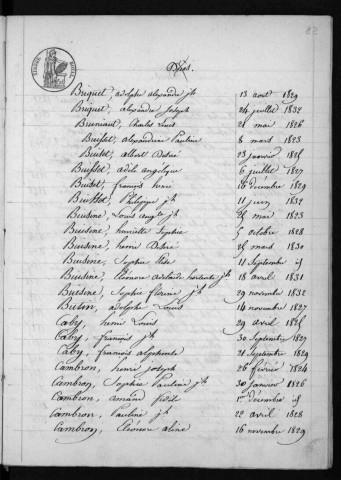 82
TIMBRE ROYAL
Décès.
Briquet, adolphe alexandre jh 13 aout 1829
Briquet, alexandre Joseph 24 juillet 1832
Bruniaut, Charles Louis 21 mai 1826
Buisset, alexandrine Pauline 8 mars 1823
Buisset, albert Désiré 23 janvier 1825
Buisset, adèle angelique 6 juillet 1827
Buisset, françois henri 16 décembre 1829
Buisset, Philippe jh 11 juin 1832
Buisine, Louis augte jh 25 mai 1823
Buisine, henriette Sophie 5 octobre 1828
Buisine, henri Désiré 25 mars 1830
Buisine, Sophie Elise 11 Septembre id
Buisine, Eléonore adélaïde hortense jh 18 avril 1831
Buisine, Sophie florine jh 29 novembre 1832
Butin, adolphe Louis 14 novembre 1827
Caby, henri Louis 29 avril 1825
Caby, françois jh 30 Septembre 1827
Caby, françois alphonse 21 Septembre 1829
Cambron, henri Joseph 26 février 1824
Cambron, Sophie Pauline jh 30 janvier 1826
Cambron, amand fidel 1er décembre id
Cambron, Pauline jh 22 avril 1828
Cambron, Eléonore aline 16 novembre 1829